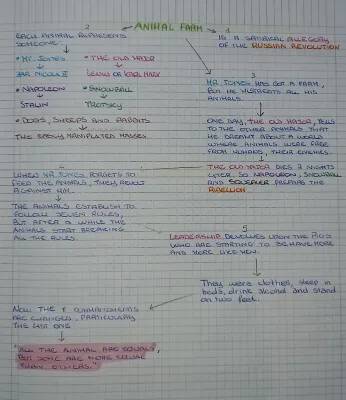 ANIMAL FARM
1
IS A SATIRICAL ALLEGORY
OF THE RUSSIAN REVOLUTION
2
EACH ANIMAL REPRESENTS
SOMEONE
• MR. JONES
• THE OLD MAJOR
TZAR NICOLA II
LENIN OR KARL MARX
• NAPOLEON
• SNOWBALL
STALIN
TROTSKY
• DOGS, SHEEPS AND RABBITS
THE EASILY MANIPLATED MASSES
3
MR. JONES HAS GOT A FARM,
BUT HE MISTREATS ALL HIS
ANIMALS.
ONE DAY, THE OLD MAJOR, TELLS
TO THE OTHER ANIMALS THAT
HE DREAMT ABOUT A WORLD
WHERE ANIMALS WERE FREE
FROM HUMANS, THEIR ENEMIES.
THE OLD MAJOR DIES 3 NIGHTS
LATER, SO NAPOLEON, SNOWBALL
AND SQUEALER PREPARE THE
REBELLION
WHEN MR. JONES FORGETS TO
FEED THE ANIMALS, THEY REVOLT
AGAINST HIM.
THE ANIMALS ESTABLISH TO
FOLLOW SEVEN RULES,
BUT AFTER A WHILE THE
ANIMALS START BREAKING
ALL THE RULES.
5
LEADERSHIP DEVOLVES UPON THE PIGS
WHO ARE STARTING TO BEHAVE MORE
AND MORE LIKE MEN.
They wear clothes, sleep in
beds, drink alcohol and stand
on two feet.
NOW THE 7 COMMANDMENTS
ARE CHANGED, PARTICULARLY
THE LAST ONE
"ALL THE ANIMAL ARE EQUALS,
BUT SOME ARE MORE EQUAL
THAN OTHERS."